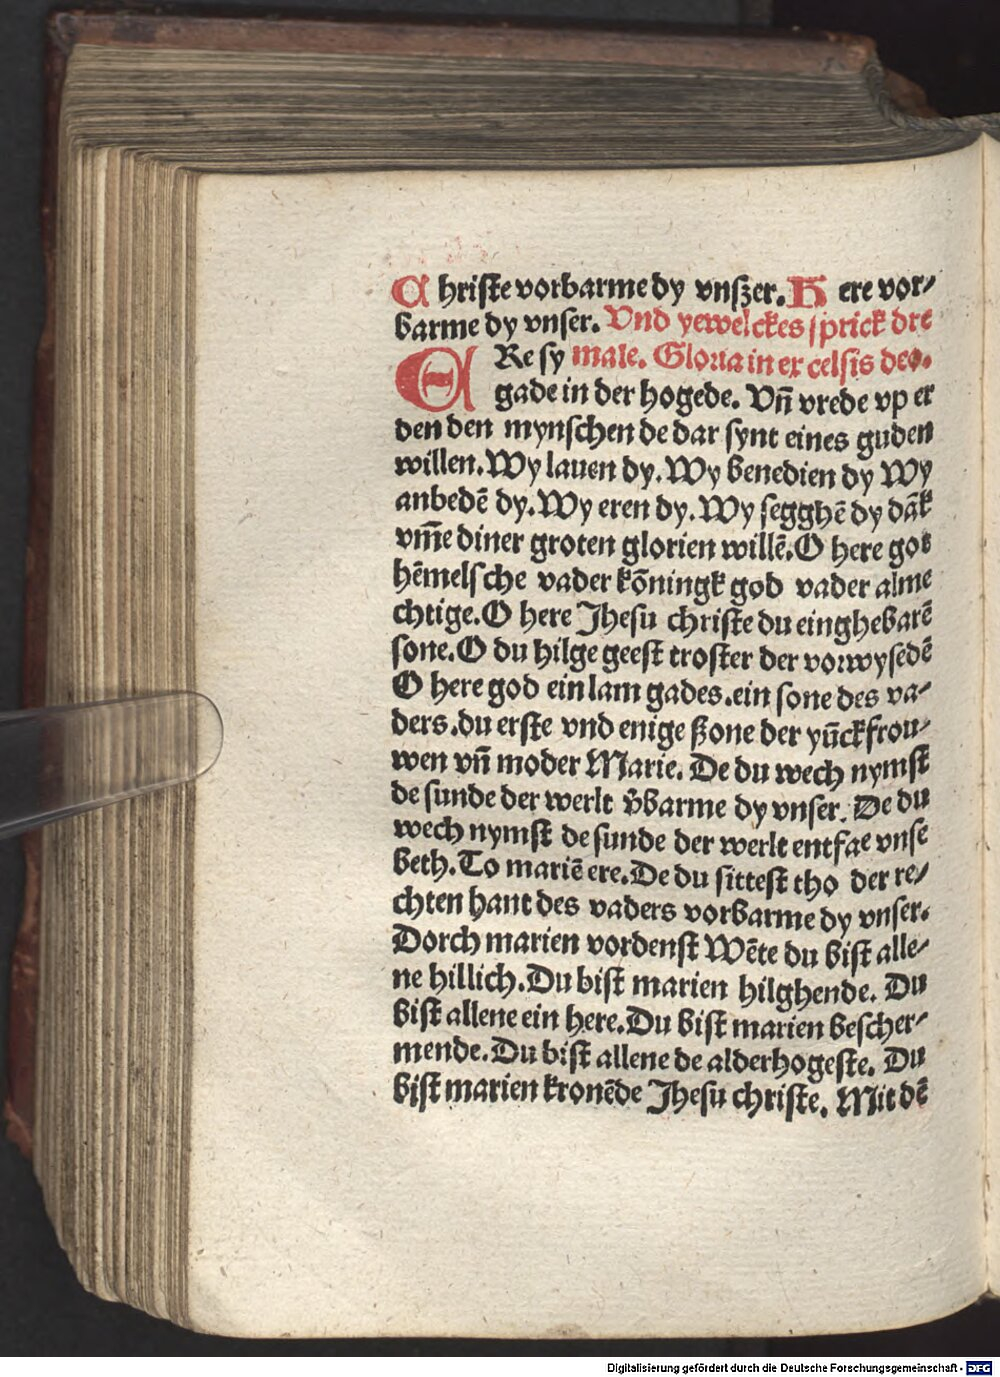 Christe vorbarme dy vnszer. Here vor⸗
barme dy vnser. Vnd yewelckes sprick dre
ERe sy male. Gloria in ex celsis deo.
gade in der hogede. Vn̄ vrede vp er
den den mynschen de dar synt eines guden
willen. Wy lauen dy. Wy benedien dy Wy
anbedē dy. Wy eren dy. Wy segghē dy dāk
vm̄e diner groten glorien willē. O here got
hēmelsche vader kōningk god vader alme
chtige. O here Jhesu christe du eingheborē
sone. O du hilge geest troster der vorwysedē
O here god ein lam gades. ein sone des va⸗
ders. du erste vnd enige szone der yūckfrou⸗
wen vn̄ moder Marie. De du wech nymst
de sunde der werlt v̄barme dy vnser. De du
wech nymst de sunde der werlt entfae vnse
beth. To mariē ere. De du sittest tho der re⸗
chten hant des vaders vorbarme dy vnser.
Dorch marien vordenst Wēte du bist alle⸗
ne hillich. Du bist marien hilghende. Du
bist allene ein here. Du bist marien bescher⸗
mende. Du bist allene de alderhogeste. Du
bist marien kronēde Jhesu christe. Mit dē
Digitalisierung gefördert durch die Deutsche Forschungsgemeinschaft - DFG